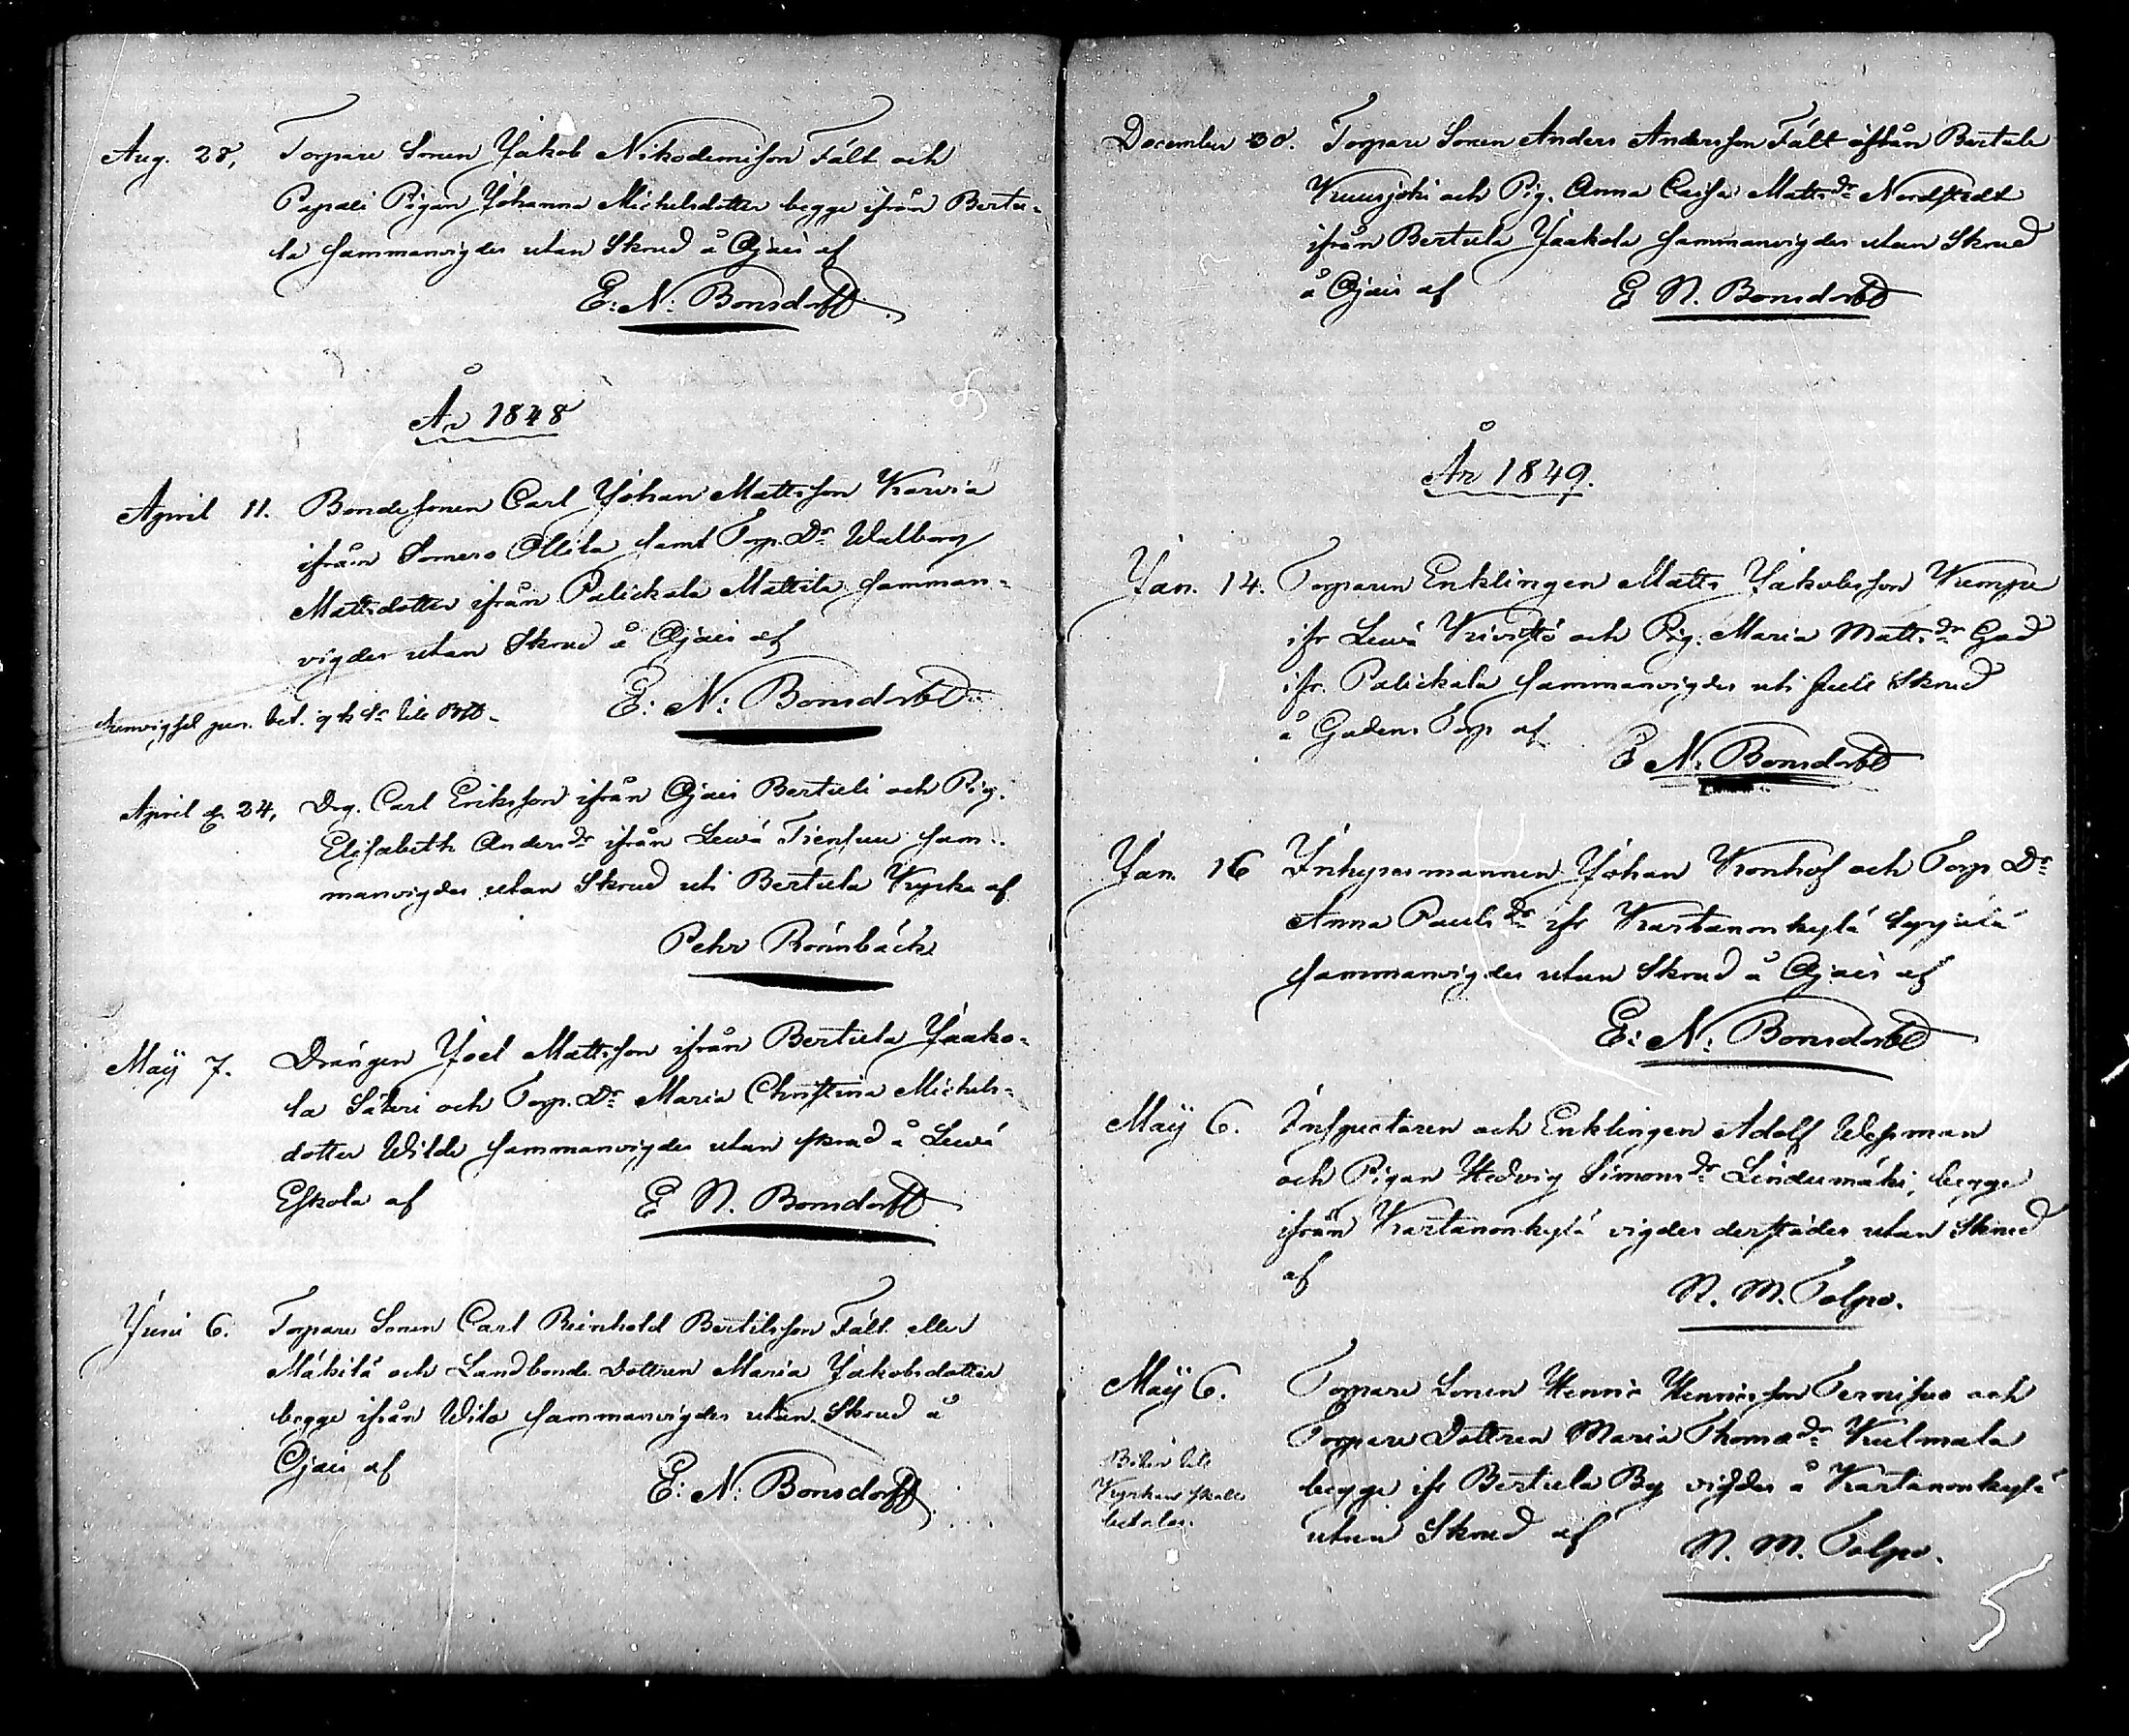 Aug. 28, Torpare Sonen Jakob Nikodemisson Fält och
Pigan Johanna Michelsdotter begge ifrån Bertu-
la sammanvigdes utan Skrud å Ojais af
E: N: Bonsdorff
År 1848
April 11. Bondesonen Carl Johan Mattsson Karvia
ifrån Somero Ollila samt Torp. Dr Walborg
Mattsdotter ifrån Palickala Mattila samman-
vigdes utan Skrud å Ojais af
E: N: Bonsdorff
April d. 24, Drg. Carl Eriksson ifrån Ojais Bertili och Pig.
Elisabeth Andersdr ifrån Lewä Tiensuu sam-
manvigdes utan Skrud uti Bertula Kyrka af
Pehr Rönnbäck
Maÿ 7. Drängen Joel Mattsson ifrån Bertula Jaako-
la Säteri och Torp. Dr Maria Christina Michels-
dotter Wilde sammanvigdes utan skrud å Lewä
Eskola af E N. Bonsdorff
Juni 6. Torpare Sonen Carl Reinhold Bertilsson Fält eller
Mäkilä och Landbonde Dottren Maria Jakobsdotter
begge ifrån Wilo sammanvigdes utan Skrud å
Ojais af E: N: Bonsdorff
December 30. Torpare Sonen Anders Andersson Fält ifrån Bertula
Kuusjoki och Pig. Anna Caisa Mattsdr Nordstedt
ifrån Bertula Jaakola sammanvigdes utan Skrud
å Ojais af E N. Bonsdorff
År 1849.
Jan. 14. Torparen Enklingen Matts Jakobsson Kempe
ifr Lewä Kivistö och Pig. Maria Mattsdr Gad
ifr. Palickala sammanvigdes uti full Skrud
å Gadens Torp af
E N: Bonsdorff
Jan. 16 Inhysesmannen Johan Kronhof och Torp Dr
Anna Paulsdr ifr Kartanonkylä Syrjälä
sammanvigdes utan Skrud å Ojais af
E: N: Bonsdorff
Maÿ 6. Inspectoren och Enklingen Adolf Wessman
och Pigan Hedvig Simonsdr Lindumäki, begge
ifrån Kartanonkylä vigdes derstädes utan Skrud
af
N. M. Tolpo.
Maÿ 6. Torpare Sonen Henric Henricsson Ternisuo och
Torpare Dottren Maria Thomædr Kulmala
Böter till
Kyrkan skall
betalas.
begge ifr Bertula By vigdes å Kartanonkylä
utan Skrud af N. M. Tolpo.
5